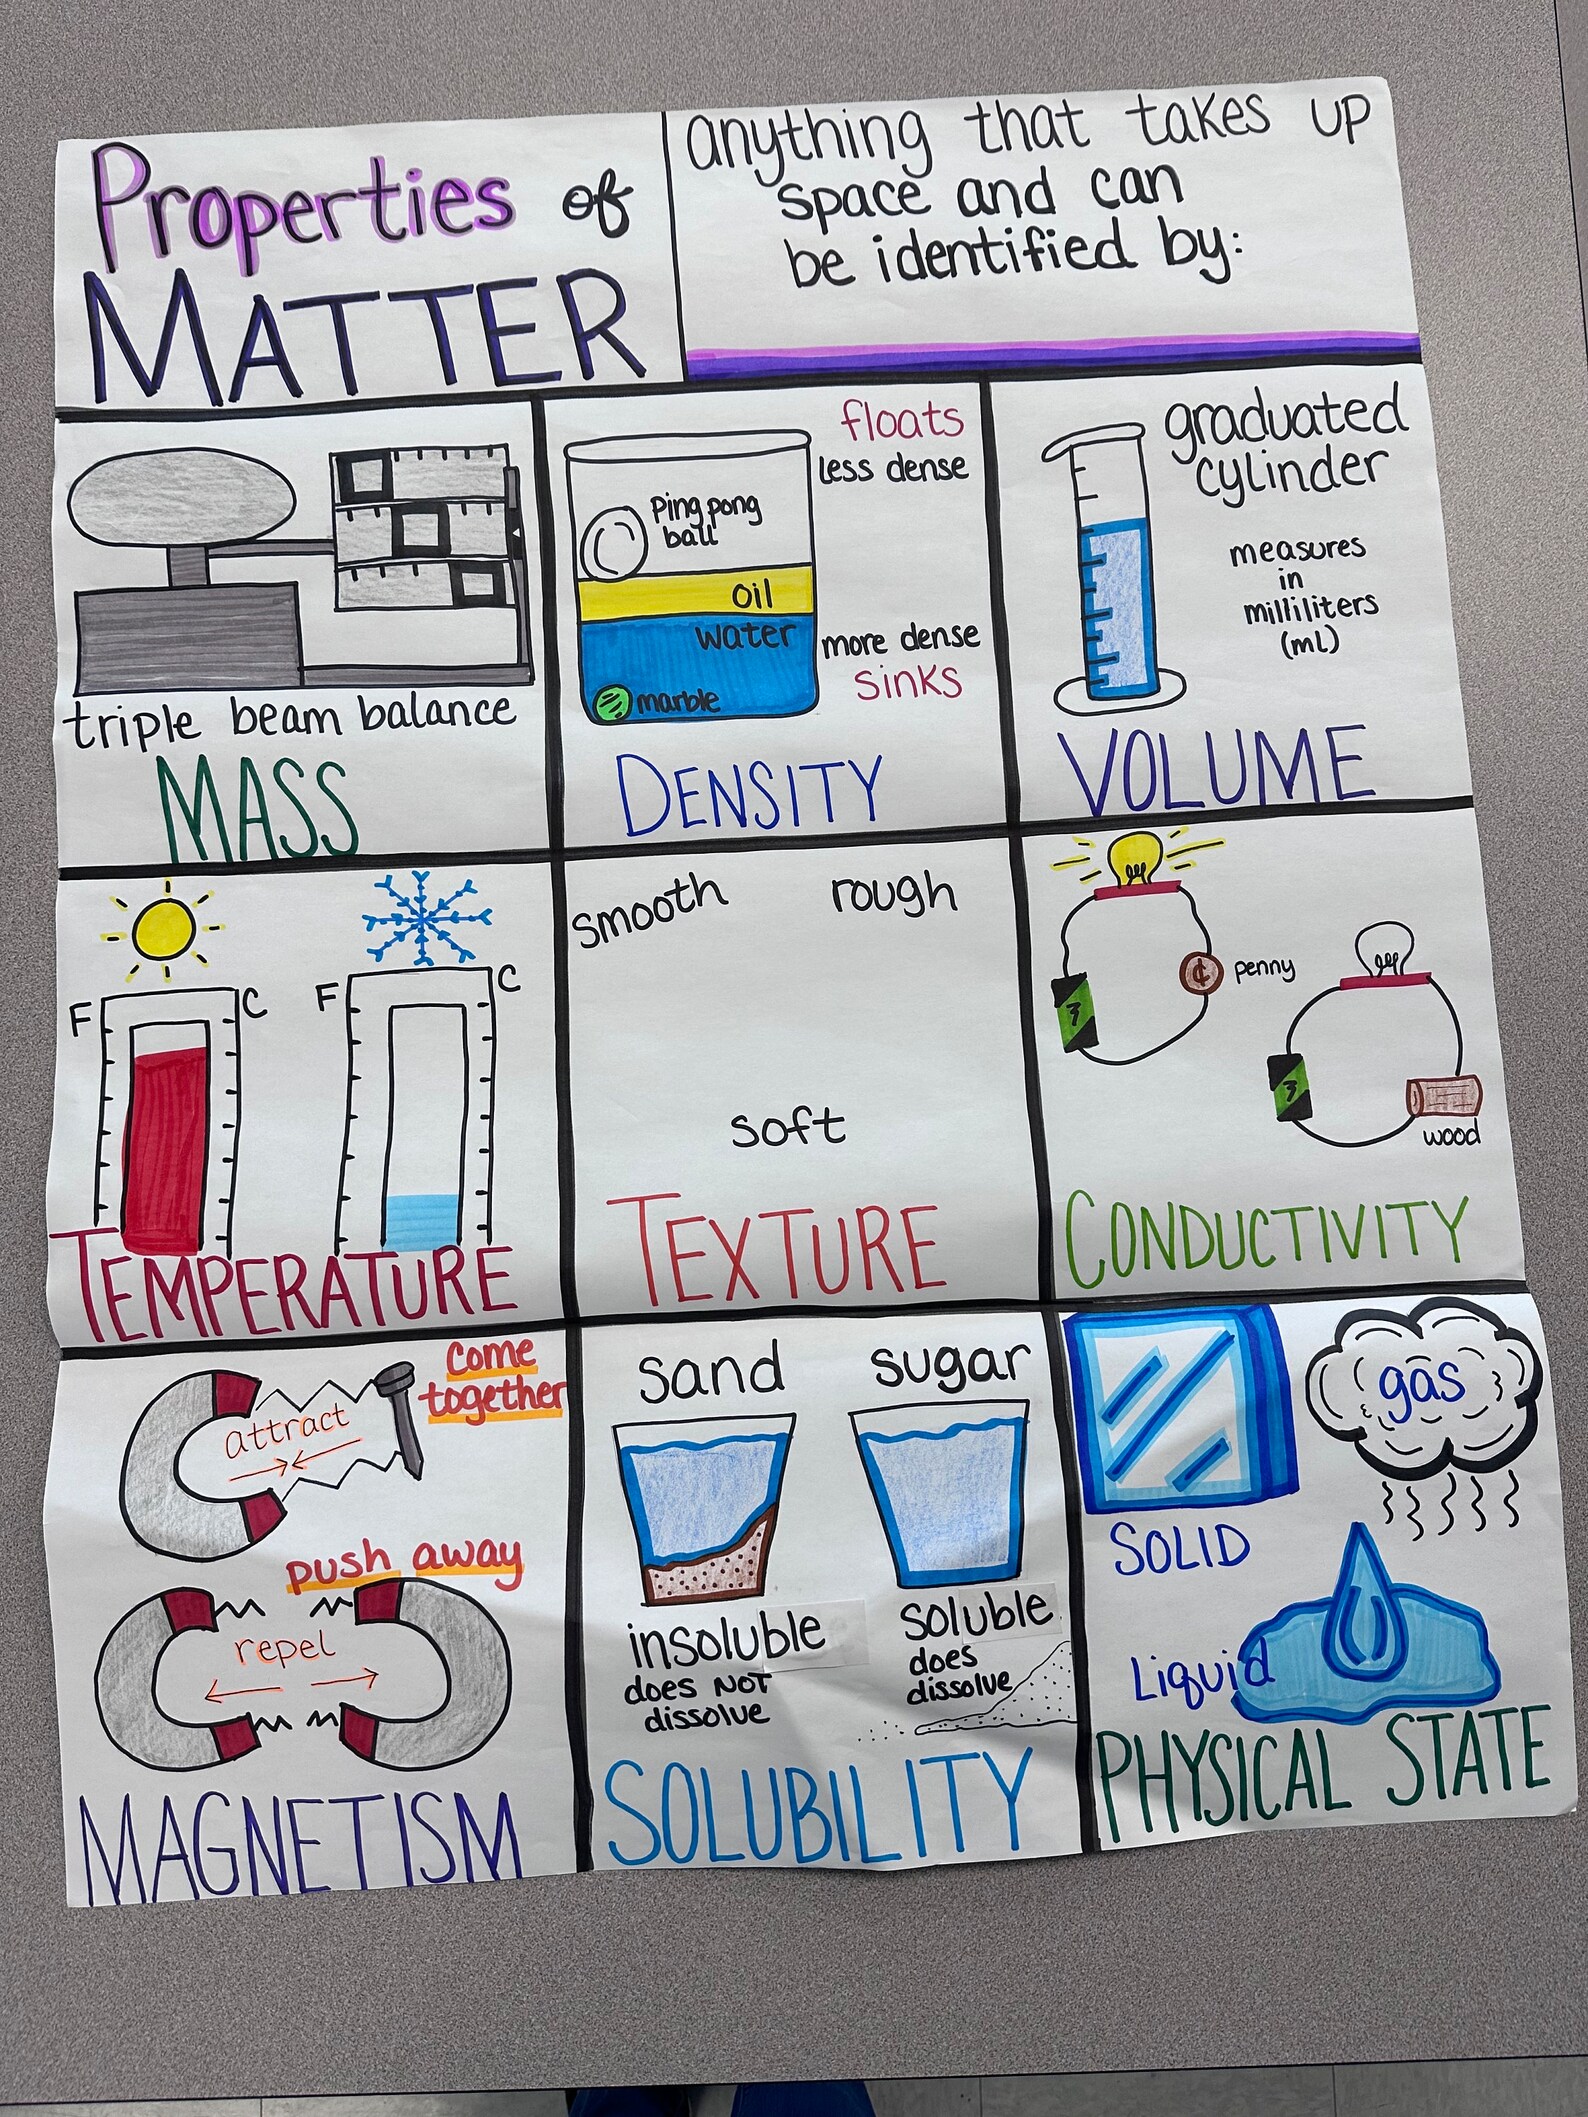 Properties of
MATTER
anything that takes up
space and can
be identified by:
triple beam balance
MASS
floats
less dense
Ping pong
ball
oil
water
more dense
sinks
marble
DENSITY
graduated
cylinder
measures
in
milliliters
(mL)
VOLUME
F C
F C
TEMPERATURE
smooth rough
soft
TEXTURE
¢ penny
wood
CONDUCTIVITY
come
together
attract
push away
repel
MAGNETISM
sand sugar
insoluble
does NOT
dissolve
soluble
does
dissolve
SOLUBILITY
gas
SOLID
Liquid
PHYSICAL STATE